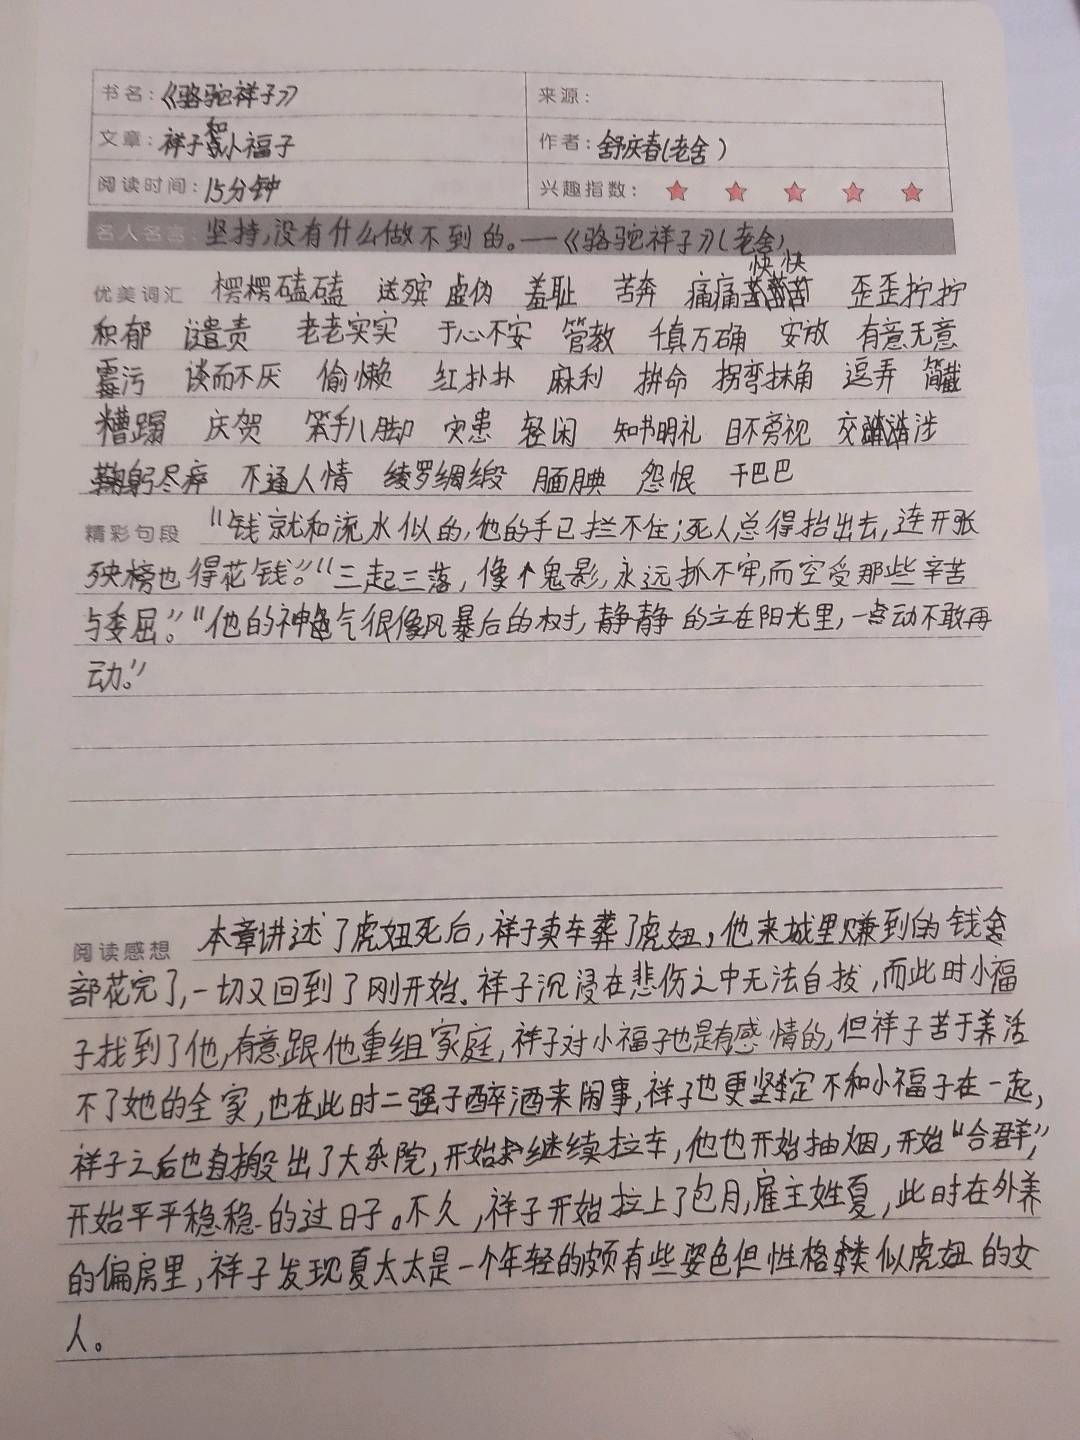 书名：《骆驼祥子》 来源：
文章：祥子和小福子 作者：舒庆春(老舍）
阅读时间：15分钟 兴趣指数：
名人名言：坚持,没有什么做不到的。——《骆驼祥子》(老舍)
优美词汇 楞楞磕磕 送殡 虚伪 羞耻 苦奔 痛痛快快 歪歪拧拧
积郁 谴责 老老实实 于心不安 管教 千真万确 安放 有意无意
霉污 谈而不厌 偷懒 红扑扑 麻利 拼命 拐弯抹角 逗弄 简截
糟蹋 庆贺 笨手八脚 灾患 轻闲 知书明礼 目不旁视 交涉
鞠躬尽瘁 不通人情 绫罗绸缎 腼腆 怨恨 干巴巴
精彩句段 “钱就和流水似的,他的手已拦不住;死人总得抬出去,连开张
殃榜也得花钱。”“三起三落，像个鬼影,永远抓不牢,而空受那些辛苦
与委屈。”“他的神气很像风暴后的树,静静的立在阳光里,一点动不敢再
动。”
阅读感想 本章讲述了虎妞死后,祥子卖车葬了虎妞,他来城里赚到的钱全
部花完了,一切又回到了刚开始。祥子沉浸在悲伤之中无法自拔,而此时小福
子找到了他,有意跟他重组家庭,祥子对小福子也是有感情的,但祥子苦于养活
不了她的全家,也在此时二强子醉酒来闹事,祥子也更坚定不和小福子在一起,
祥子之后也搬出了大杂院,开始继续拉车,他也开始抽烟,开始“合群”,
开始平平稳稳的过日子。不久,祥子开始拉上了包月,雇主姓夏,此时在外养
的偏房里,祥子发现夏太太是一个年轻的颇有些姿色但性格类似虎妞的女
人。